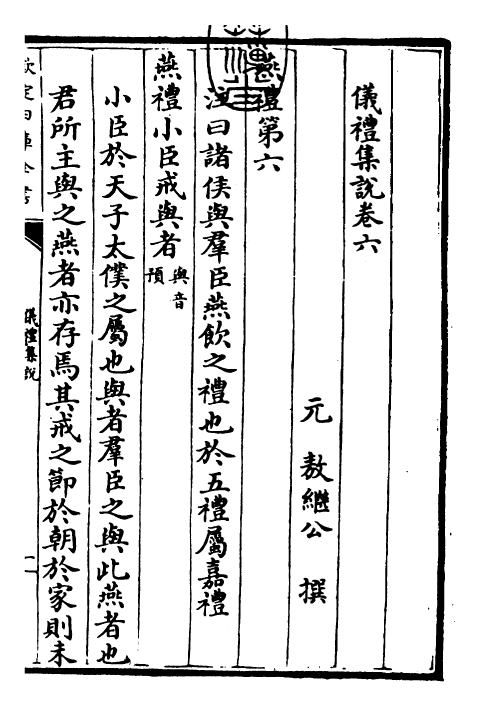 儀禮集說卷六
元 敖繼公 撰
燕禮第六
注曰諸侯與羣臣燕飲之禮也於五禮屬嘉禮
燕禮小臣戒與者與音預
小臣於天子太僕之屬也與者羣臣之與此燕者也
君所主與之燕者亦存焉其戒之節於朝於家則未
儀禮集說